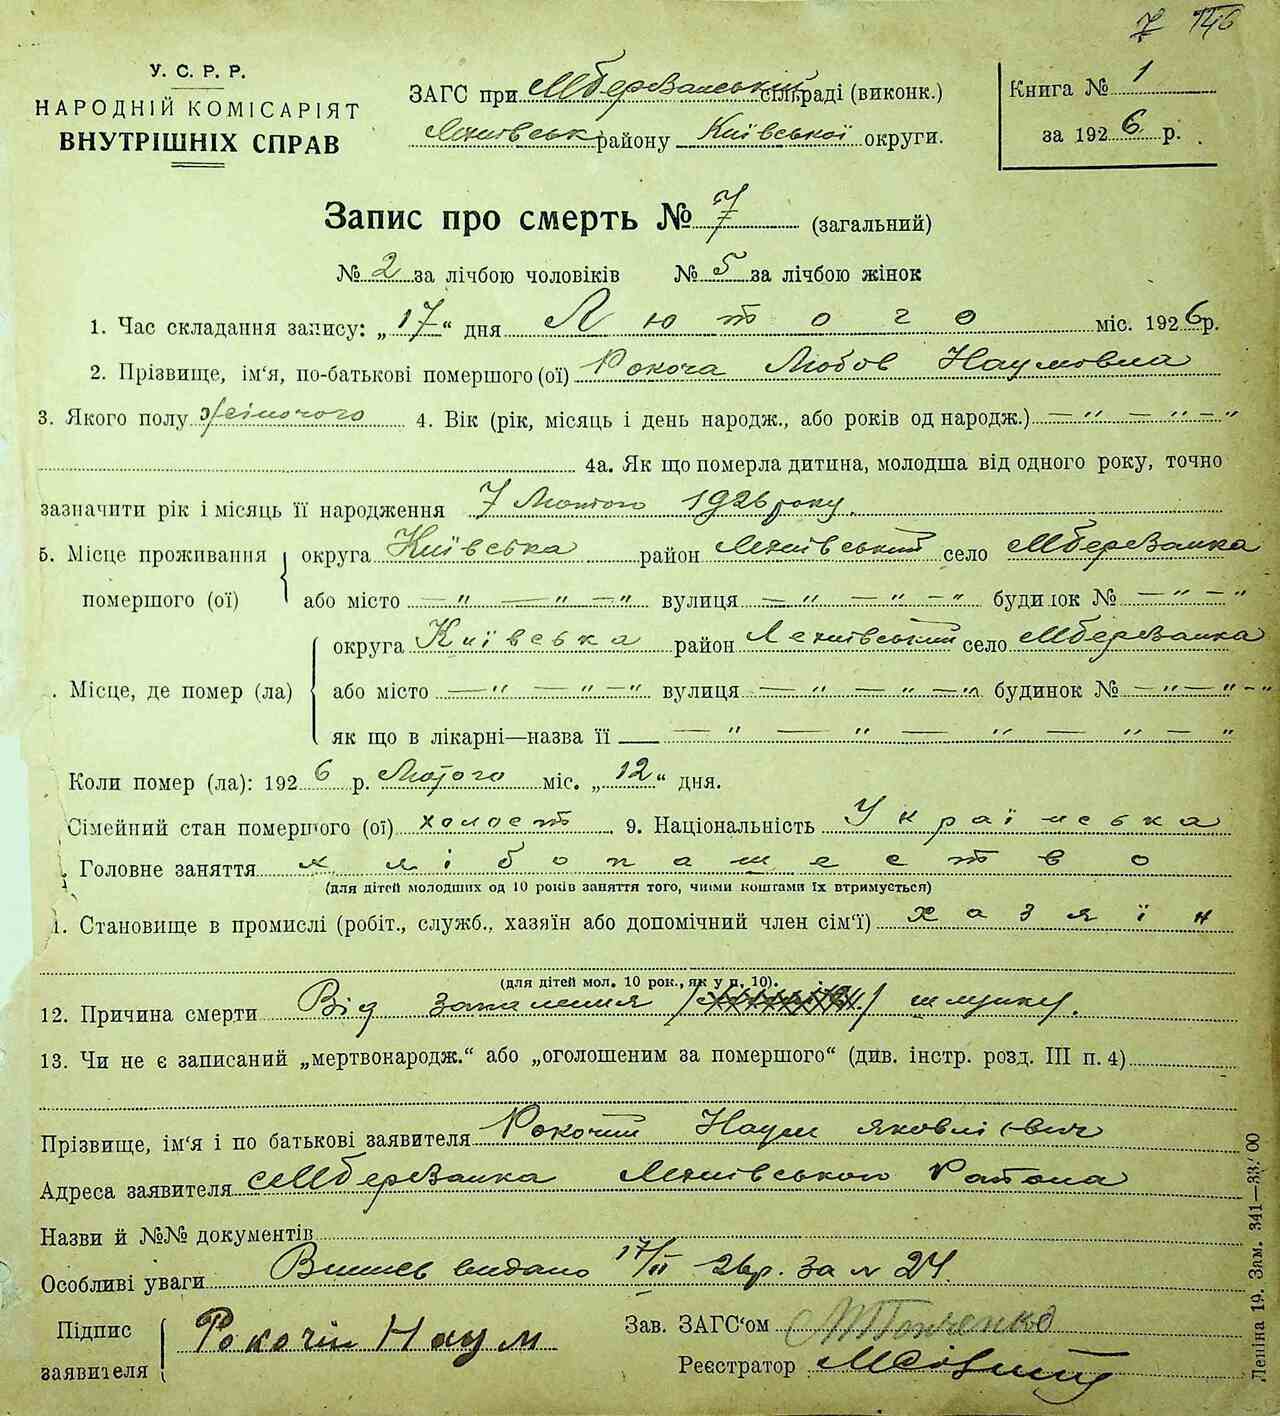 У. С. Р. Р.
НАРОДНІЙ КОМІСАРІЯТ
ВНУТРІШНІХ СПРАВ
ЗАГС при МберезанськиЙ сільраді (виконк.)
району Київської округи.
Книга № 1
за 1926 р.
Запис про смерть № 7 (загальний)
№ 2 за лічбою чоловіків № 5 за лічбою жінок
1. Час складання запису: „17“ дня Лютого міс. 1926 р.
2. Прізвище, ім‘я, по-батькові помершого (ої) Рокоча Любов Наумовна
3. Якого полу жіночого 4. Вік (рік, місяць і день народж., або років од народж.) — „ — „ — „
4а. Як що померла дитина, молодша від одного року, точно
зазначити рік і місяць її народження 7 Лютого 1926 року.
5. Місце проживання помершого (ої) округа Київська район село Мберезанка
або місто — „ — „ — „ вулиця — „ — „ — „ будинок № — „ — „
Місце, де помер (ла) округа Київська район село Мберезанка
або місто — „ — „ — „ вулиця — „ — „ — „ будинок № — „ — „ — „
як що в лікарні—назва її — „ — „ — „ — „ — „
Коли помер (ла): 1926 р. Лютого міс. „12“ дня.
Сімейний стан помершого (ої) холост 9. Національність Українська
Головне заняття хлібопашество
(для дітей молодших од 10 років заняття того, чиїми коштами їх втримується)
1. Становище в промислі (робіт., служб., хазяїн або допомічний член сім‘ї) хазяїн
(для дітей мол. 10 рок., як у п. 10).
12. Причина смерти Від запалення шлунку.
13. Чи не є записаний „мертвонародж.“ або „оголошеним за помершого“ (див. інстр. розд. III п. 4)
Прізвище, ім‘я і по батькові заявителя Рокочий Наум Яковлієвич
Адреса заявителя Мберезанка Района
Назви й №№ документів
Особливі уваги Випись видано 17/II 26р. за № 24.
Підпис заявителя Рокочін Наум
Зав. ЗАГС‘ом
Реєстратор
Леніна 19. Зам. 341—33.